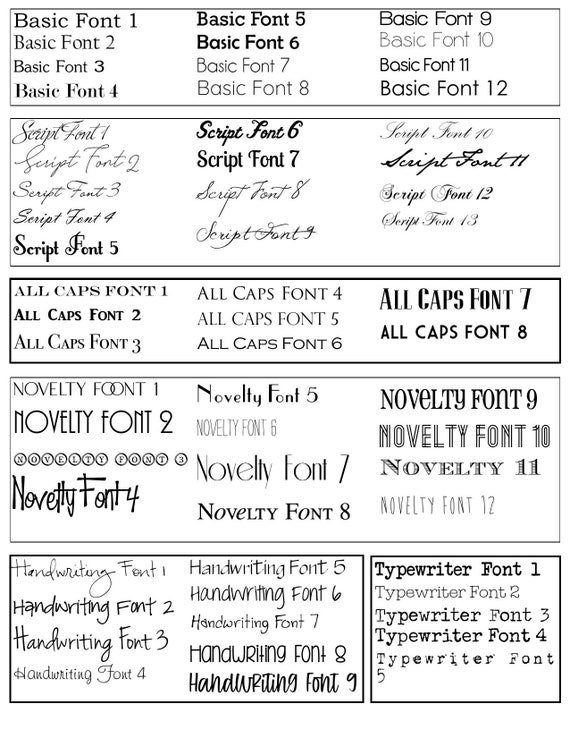 Basic Font 1
Basic Font 2
Basic Font 3
Basic Font 4
Basic Font 5
Basic Font 6
Basic Font 7
Basic Font 8
Basic Font 9
Basic Font 10
Basic Font 11
Basic Font 12
Script Font 1
Script Font 2
Script Font 3
Script Font 4
Script Font 5
Script Font 6
Script Font 7
Script Font 8
Script Font 9
Script Font 10
Script Font 11
Script Font 12
Script Font 13
ALL CAPS FONT 1
ALL CAPS FONT 2
ALL CAPS FONT 3
ALL CAPS FONT 4
ALL CAPS FONT 5
ALL CAPS FONT 6
ALL CAPS FONT 7
ALL CAPS FONT 8
NOVELTY FOONT 1
NOVELTY FONT 2
NOVELTY FONT 3
Novelty Font 4
Novelty Font 5
NOVELTY FONT 6
Novelty Font 7
NOVELTY FONT 8
NOVELTY FONT 9
NOVELTY FONT 10
NOVELTY 11
NOVELTY FONT 12
Handwriting Font 1
Handwriting Font 2
Handwriting Font 3
Handwriting Font 4
Handwriting Font 5
Handwriting Font 6
Handwriting Font 7
Handwriting Font 8
Handwriting Font 9
Typewriter Font 1
Typewriter Font 2
Typewriter Font 3
Typewriter Font 4
Typewriter Font
5